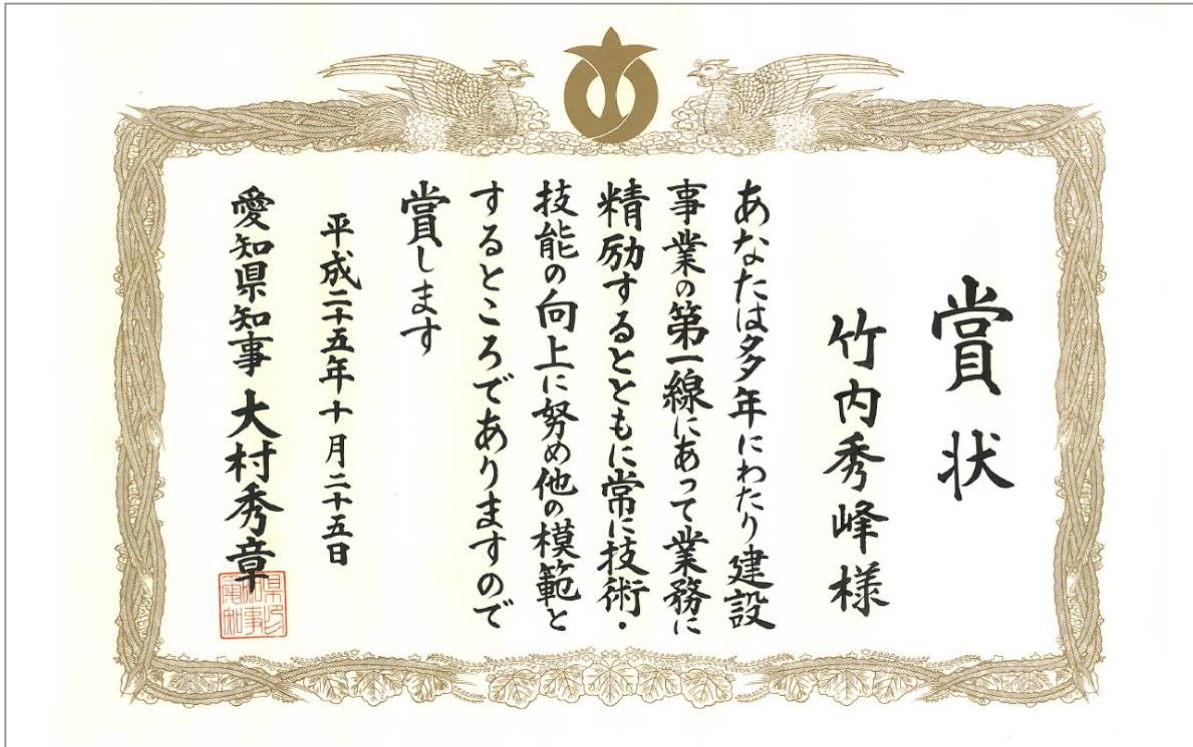 賞状
竹内秀峰様
あなたは多年にわたり建設
事業の第一線にあって業務に
精励するとともに常に技術・
技能の向上に努め他の模範と
するところでありますので
賞します
平成二十五年十月二十五日
愛知県知事 大村秀章